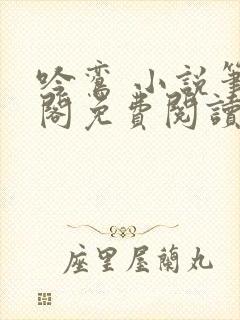 吟鸞 小説筆
閣免費閱讀
座里屋蘭丸